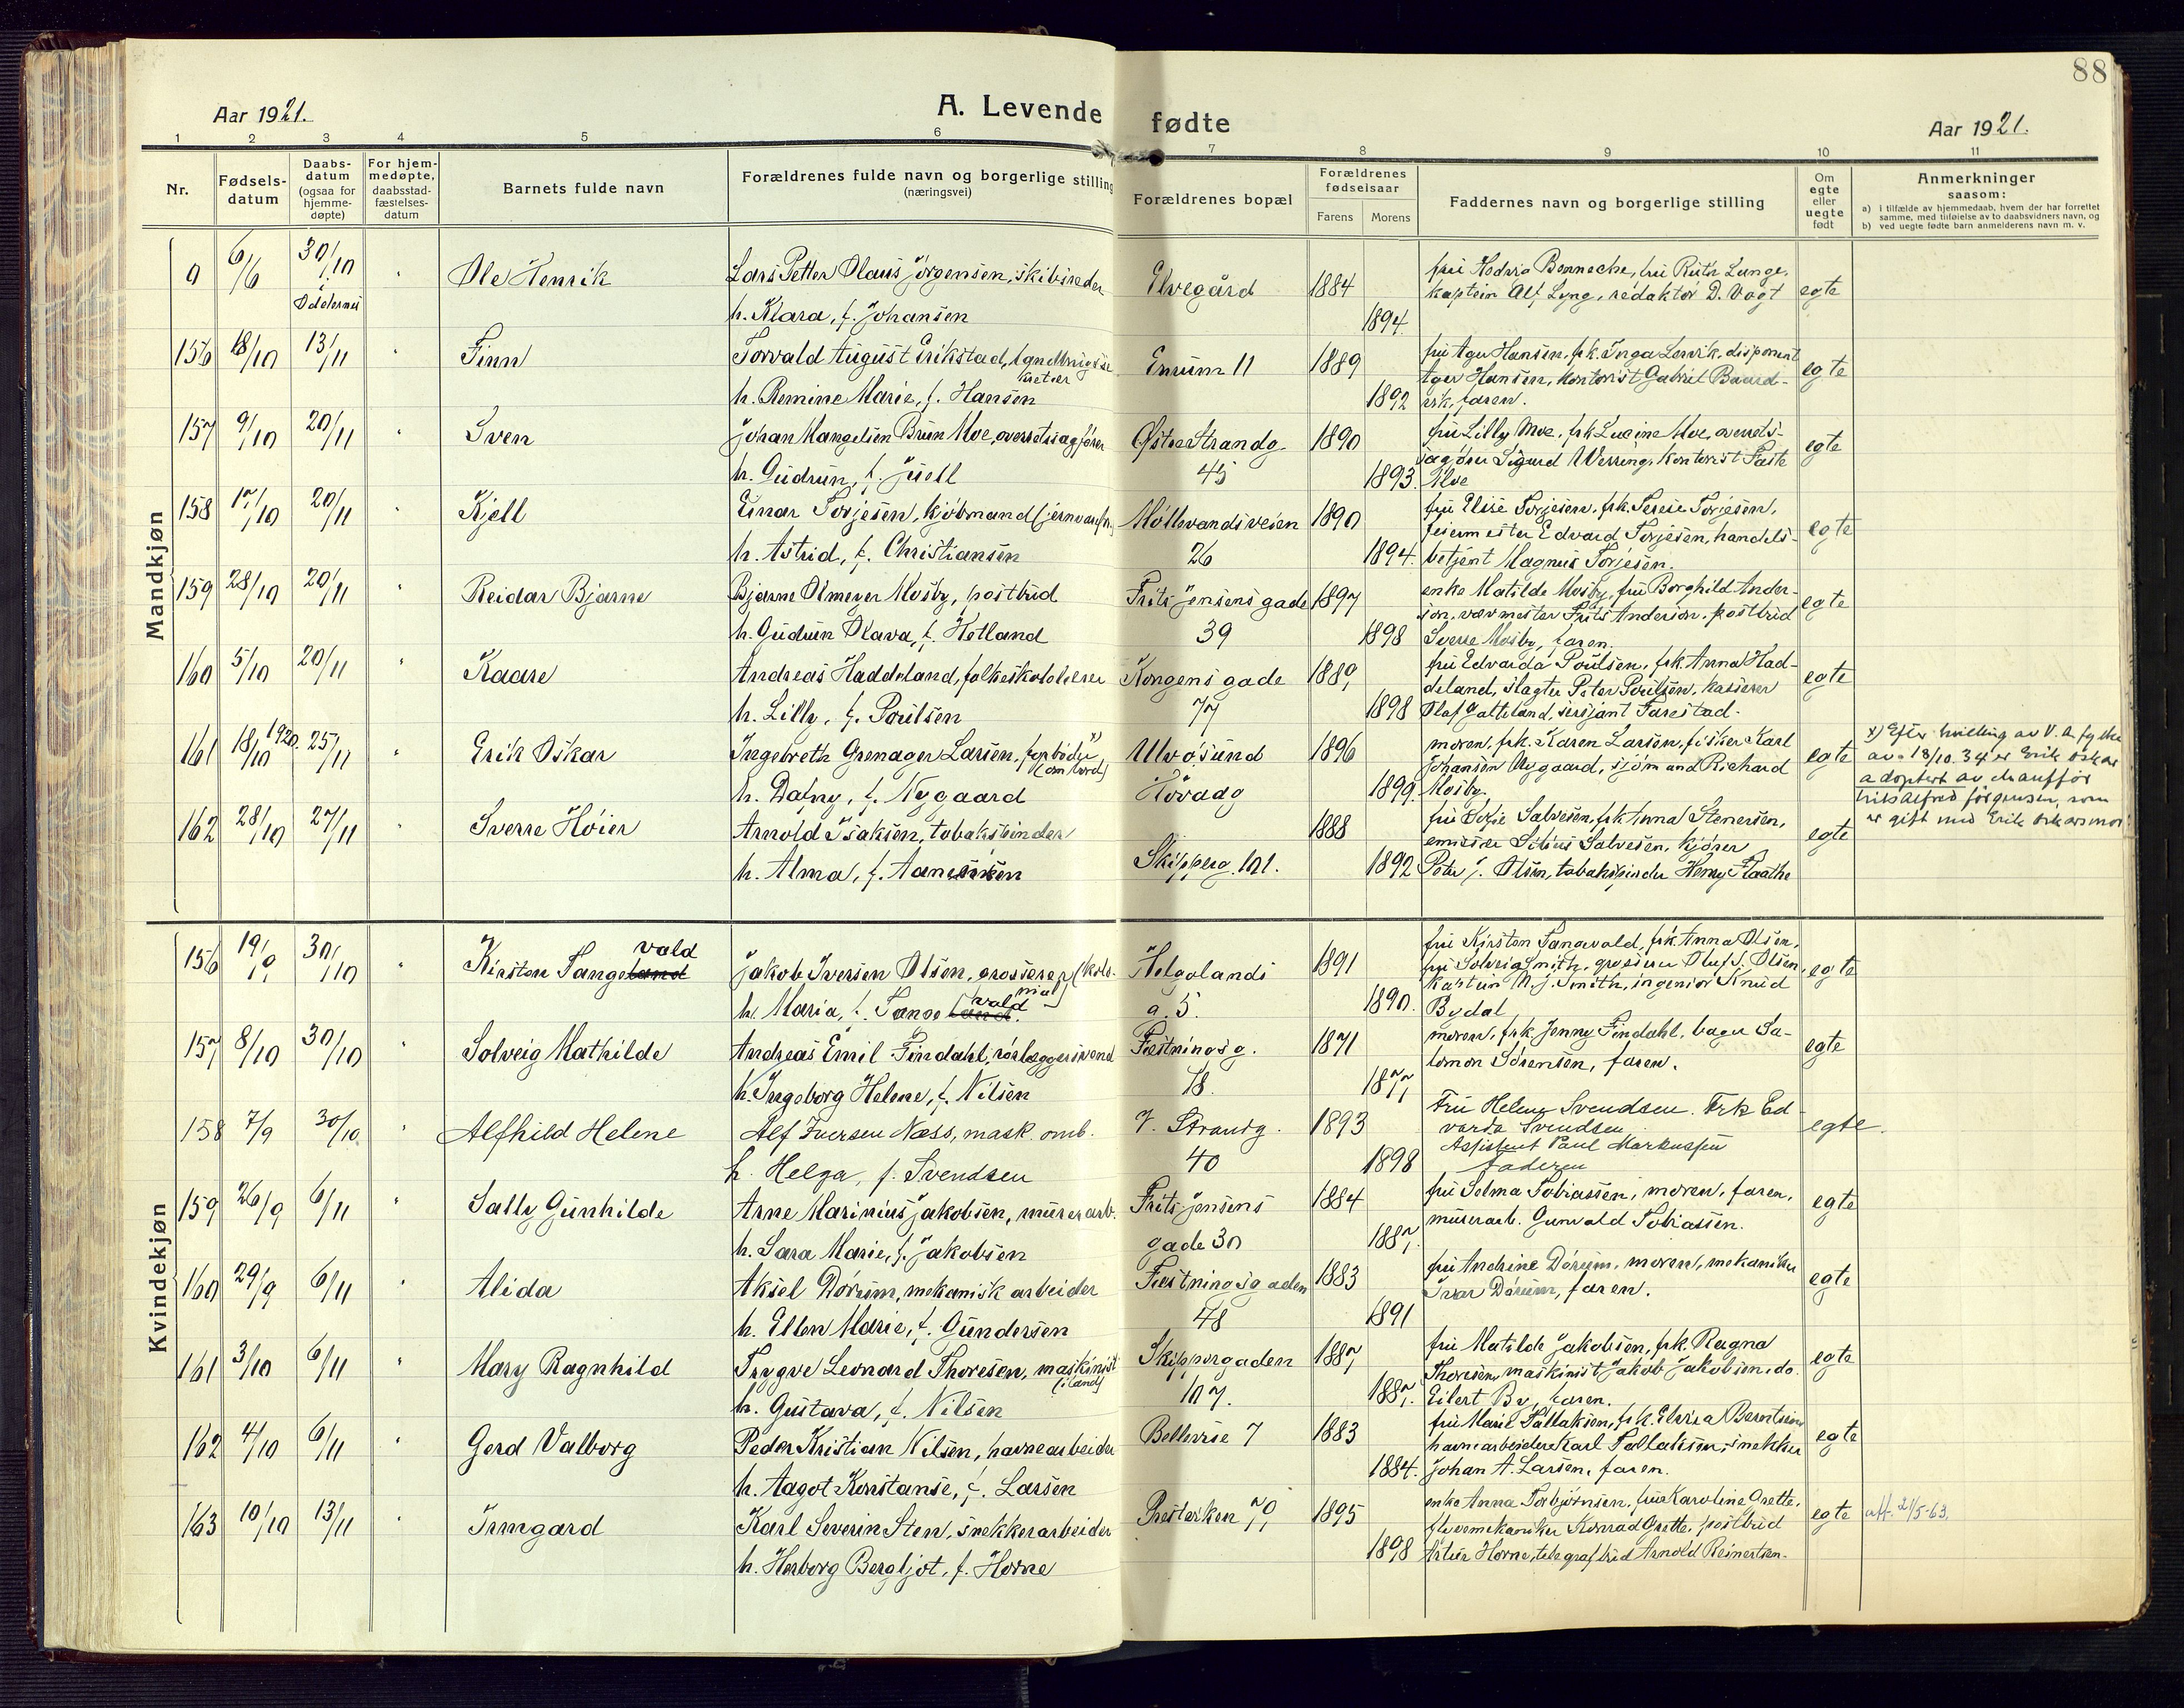 88
Aar 1921.
A. Levende fødte
Aar 1921.
1 2 3 4 5 6 7 8 9 10 11
Nr.
Fødsels-
datum
Daabs-
datum
(ogsaa for
hjemme-
døpte)
For hjem-
medøpte,
daabsstad-
fæstelses-
datum
Barnets fulde navn
Forældrenes fulde navn og borgerlige stilling
(næringsvei)
Forældrenes bopæl
Forældrenes
fødselsaar
Farens Morens
Faddernes navn og borgerlige stilling
Om
egte
eller
uegte
født
Anmerkninger
saasom:
a) i tilfælde av hjemmedaab, hvem der har forrettet
samme, med tilføielse av to daabsvidners navn, og
b) ved uegte fødte barn anmelderens navn m. v.
Mandkjøn
0 6/6 30/10 i Oddernes " Ole Henrik Lars Petter Olaus Jørgensen, skibsreder Elvegård 1884 fru Ruth Lunge, egte
kaptein Alf Lyng, redaktør D. Vogt
h. Klara, f. Johansen 1894
156 18/10 13/11 " Finn Torvald August Erikstad, 11 1889 fru Ager Hansen, frk. Inga Lervik, disponent egte
Ager Hansen, kontorist Gabriel
h. Remine Marie, f. Hansen 1892 faren.
157 9/10 20/11 " Sven Johan Mangelsen Brun Moe, overretssagfører Østre Strandg. 1890 fru Lilly Moe, frk Lucine Moe, overrets- egte
sagfører Sigurd Werring, kontorist
h. Gudrun, f. Juell 45 1893. Moe
158 17/10 20/11 " Kjell Einar Torjesen, kjøbmand (jernvarefr.) Møllevandsveien 1890 fru Elise Torjesen, frk. Terese Torjesen, egte
feiermester Edvard Torjesen, handels-
h. Astrid, f. Christiansen 26 1894. betjent Magnus Torjesen.
159 28/10 20/11 " Reidar Bjarne Bjarne Olmeyer Mosby, postbud Frits Jensens gade 1897 enke Matilde Mosby, fru Borghild Ander- egte
son, vævmester Frits Anderson, postbud
h. Gudrun Olava, f. Hetland 39 1898 Sverre Mosby, faren.
160 5/10 20/11 " Kaare Andreas Haddeland, folkeskolelærer Kongens gade 1889 fru Edvarda Poulsen, frk. Anna Had- egte
deland, slagter Peter Poulsen, kasserer
h. Lilly, f. Poulsen 77 1898 Olaf sersjant Farestad.
161 18/10 1920. 25/11 " Erik Oskar Ingebreth Grenager Larsen, fyrbøder x) (om bord) Ulvøsund 1896 moren, frk. Karen Larsen, fisker Karl egte
Johansen Nygaard, sjømand Richard
h. Dagny, f. Nygaard Høvaag 1899. Mosby.
x) Efter av V. A. fylke
av 18/10.34 er Erik Oskar
adoptert av chauffør
Erik Alfred Jørgensen, som
er gift med Erik Oskars mor.
162 28/10 27/11 Sverre Høier Arnold Isaksen, tobakspinder 1888 fru Sofie Salvesen, frk Anna Stenersen, egte
Salvesen, kjører
h. Alma, f. Aanensen Skipperg. 101. 1892 Peter J. Olsen, tobakspinder Henry Flaathe
Kvindekjøn
156 19/9 30/10 " Kirsten Tangeland vald Jakob Iversen Olsen, grosserer (kolo- Helgolands 1891 fru Kirsten Tangvald, frk. Anna Olsen, egte
nial)
fru Solveig Smith, grosserer Oluf S. Olsen,
kaptein N. J. Smith, ingeniør Knud
h. Maria, f. Tangeland vald g. 5. 1890. Bydal
157 8/10 30/10 Solveig Mathilde Andreas Emil Findahl, rørlæggersvend Fæstningsg. 1871 moren, frk. Jenny Findahl, bager Sa- egte
lomon Sørensen, faren.
h. Ingeborg Helene, f. Nilsen 18. 1877
158 7/9 30/10. " Alfhild Helene Alf Iversen Næss, mask. arb. V. Strandg. 1893 Fru Helene Svendsen. Frk Ed- egte.
varda Svendsen
Assistent Paul Markussen
h. Helga, f. Svendsen 40 1898 faderen
159 26/9 6/11 " Sally Gunhilde Arne Marinius Jakobsen, murerarb. Frits Jensens 1884 fru Selma Tobiassen, moren, faren, egte
murerarb. Gunvald Tobiassen.
h. Sara Marie, f. Jakobsen gade 30 1887.
160 29/9 6/11 " Alida Aksel Dørum, mekanisk arbeider Fæstningsgaden 1883 fru Andrine Dørum, moren, mekaniker egte
Ivar Dørum, faren.
h. Ellen Marie, f. Gundersen 48 1891
161 3/10 6/11 " Mary Ragnhild Trygve Leonard Thoresen, maskinist (iland) Skippergaden 1887 fru Matilde Jakobsen, frk. Ragna egte
Thoresen, maskinist Jakob Jakobsen, do.
h. Gustava, f. Nilsen 107. 1887. Eilert By, faren.
162 4/10 6/11 " Gerd Valborg Peder Kristian Nilsen, havnearbeider Bellevue 7 1883 fru Marie Tallaksen, frk. egte
havnearbeidere Karl Tallaksen, snekker
h. Aagot Konstanse, f. Larsen 1884. Johan A. Larsen, faren.
163 10/10 13/11 " Irmgard Karl Severin Sten, snekkerarbeider 1895 enke Anna Torbjørnsen, frue Karoline Grette, egte att. 21/5-63.
Konrad Grette, postbud
h. Herborg Bergljot, f. Horne 1898 Artur Horne, telegrafbud Arnold Reinertsen.